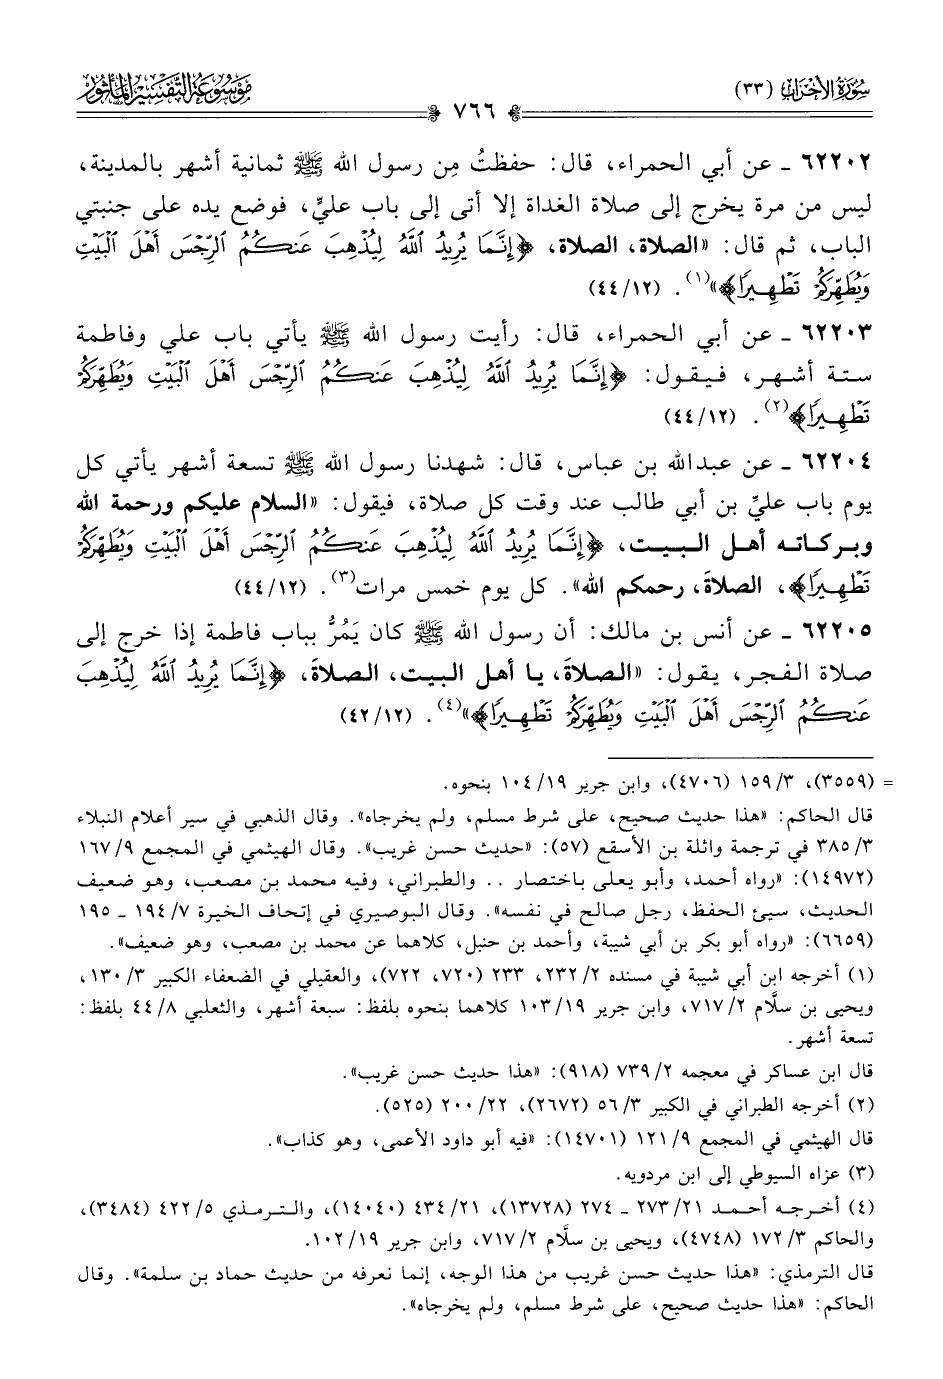 سُورَةُ الأَحْزَابِ (٣٣)
٧٦٦
مَوْسُوعَةُ التَّفْسِيرِ المَأْثُورِ
٦٢٢٠٢ ـ عن أبي الحمراء، قال: حفظتُ مِن رسول الله ﷺ ثمانية أشهر بالمدينة،
ليس من مرة يخرج إلى صلاة الغداة إلا أتى إلى باب عليٍّ، فوضع يده على جنبتي
الباب، ثم قال: «الصلاة، الصلاة، ﴿إِنَّمَا يُرِيدُ ٱللَّهُ لِيُذْهِبَ عَنكُمُ ٱلرِّجْسَ أَهْلَ ٱلْبَيْتِ
وَيُطَهِّرَكُمْ تَطْهِيرًا﴾»(١). (١٢/ ٤٤)
٦٢٢٠٣ ـ عن أبي الحمراء، قال: رأيت رسول الله ﷺ يأتي باب علي وفاطمة
ستة أشهر، فيقول: ﴿إِنَّمَا يُرِيدُ ٱللَّهُ لِيُذْهِبَ عَنكُمُ ٱلرِّجْسَ أَهْلَ ٱلْبَيْتِ وَيُطَهِّرَكُمْ
تَطْهِيرًا﴾(٢). (١٢/ ٤٤)
٦٢٢٠٤ ـ عن عبدالله بن عباس، قال: شهدنا رسول الله ﷺ تسعة أشهر يأتي كل
يوم باب عليِّ بن أبي طالب عند وقت كل صلاة، فيقول: «السلام عليكم ورحمة الله
وبركاته أهل البيت، ﴿إِنَّمَا يُرِيدُ ٱللَّهُ لِيُذْهِبَ عَنكُمُ ٱلرِّجْسَ أَهْلَ ٱلْبَيْتِ وَيُطَهِّرَكُمْ
تَطْهِيرًا﴾، الصلاةَ، رحمكم الله». كل يوم خمس مرات(٣). (١٢/ ٤٤)
٦٢٢٠٥ ـ عن أنس بن مالك: أن رسول الله ﷺ كان يَمُرُّ بباب فاطمة إذا خرج إلى
صلاة الفجر، يقول: «الصلاةَ، يا أهل البيت، الصلاةَ، ﴿إِنَّمَا يُرِيدُ ٱللَّهُ لِيُذْهِبَ
عَنكُمُ ٱلرِّجْسَ أَهْلَ ٱلْبَيْتِ وَيُطَهِّرَكُمْ تَطْهِيرًا﴾»(٤). (١٢/ ٤٢)
= (٣٥٥٩)، ٣/ ١٥٩ (٤٧٠٦)، وابن جرير ١٩/ ١٠٤ بنحوه.
قال الحاكم: «هذا حديث صحيح، على شرط مسلم، ولم يخرجاه». وقال الذهبي في سير أعلام النبلاء
٣/ ٣٨٥ في ترجمة واثلة بن الأسقع (٥٧): «حديث حسن غريب». وقال الهيثمي في المجمع ٩/ ١٦٧
(١٤٩٧٢): «رواه أحمد، وأبو يعلى باختصار .. والطبراني، وفيه محمد بن مصعب، وهو ضعيف
الحديث، سيئ الحفظ، رجل صالح في نفسه». وقال البوصيري في إتحاف الخيرة ٧/ ١٩٤ ـ ١٩٥
(٦٦٥٩): «رواه أبو بكر بن أبي شيبة، وأحمد بن حنبل، كلاهما عن محمد بن مصعب، وهو ضعيف».
(١) أخرجه ابن أبي شيبة في مسنده ٢/ ٢٣٢، ٢٣٣ (٧٢٠، ٧٢٢)، والعقيلي في الضعفاء الكبير ٣/ ١٣٠،
ويحيى بن سلَّام ٢/ ٧١٧، وابن جرير ١٩/ ١٠٣ كلاهما بنحوه بلفظ: سبعة أشهر، والثعلبي ٨/ ٤٤ بلفظ:
تسعة أشهر.
قال ابن عساكر في معجمه ٢/ ٧٣٩ (٩١٨): «هذا حديث حسن غريب».
(٢) أخرجه الطبراني في الكبير ٣/ ٥٦ (٢٦٧٢)، ٢٢/ ٢٠٠ (٥٢٥).
قال الهيثمي في المجمع ٩/ ١٢١ (١٤٧٠١): «فيه أبو داود الأعمى، وهو كذاب».
(٣) عزاه السيوطي إلى ابن مردويه.
(٤) أخرجه أحمد ٢١/ ٢٧٣ ـ ٢٧٤ (١٣٧٢٨)، ٢١/ ٤٣٤ (١٤٠٤٠)، والترمذي ٥/ ٤٢٢ (٣٤٨٤)،
والحاكم ٣/ ١٧٢ (٤٧٤٨)، ويحيى بن سلَّام ٢/ ٧١٧، وابن جرير ١٩/ ١٠٢.
قال الترمذي: «هذا حديث حسن غريب من هذا الوجه، إنما نعرفه من حديث حماد بن سلمة». وقال
الحاكم: «هذا حديث صحيح، على شرط مسلم، ولم يخرجاه».